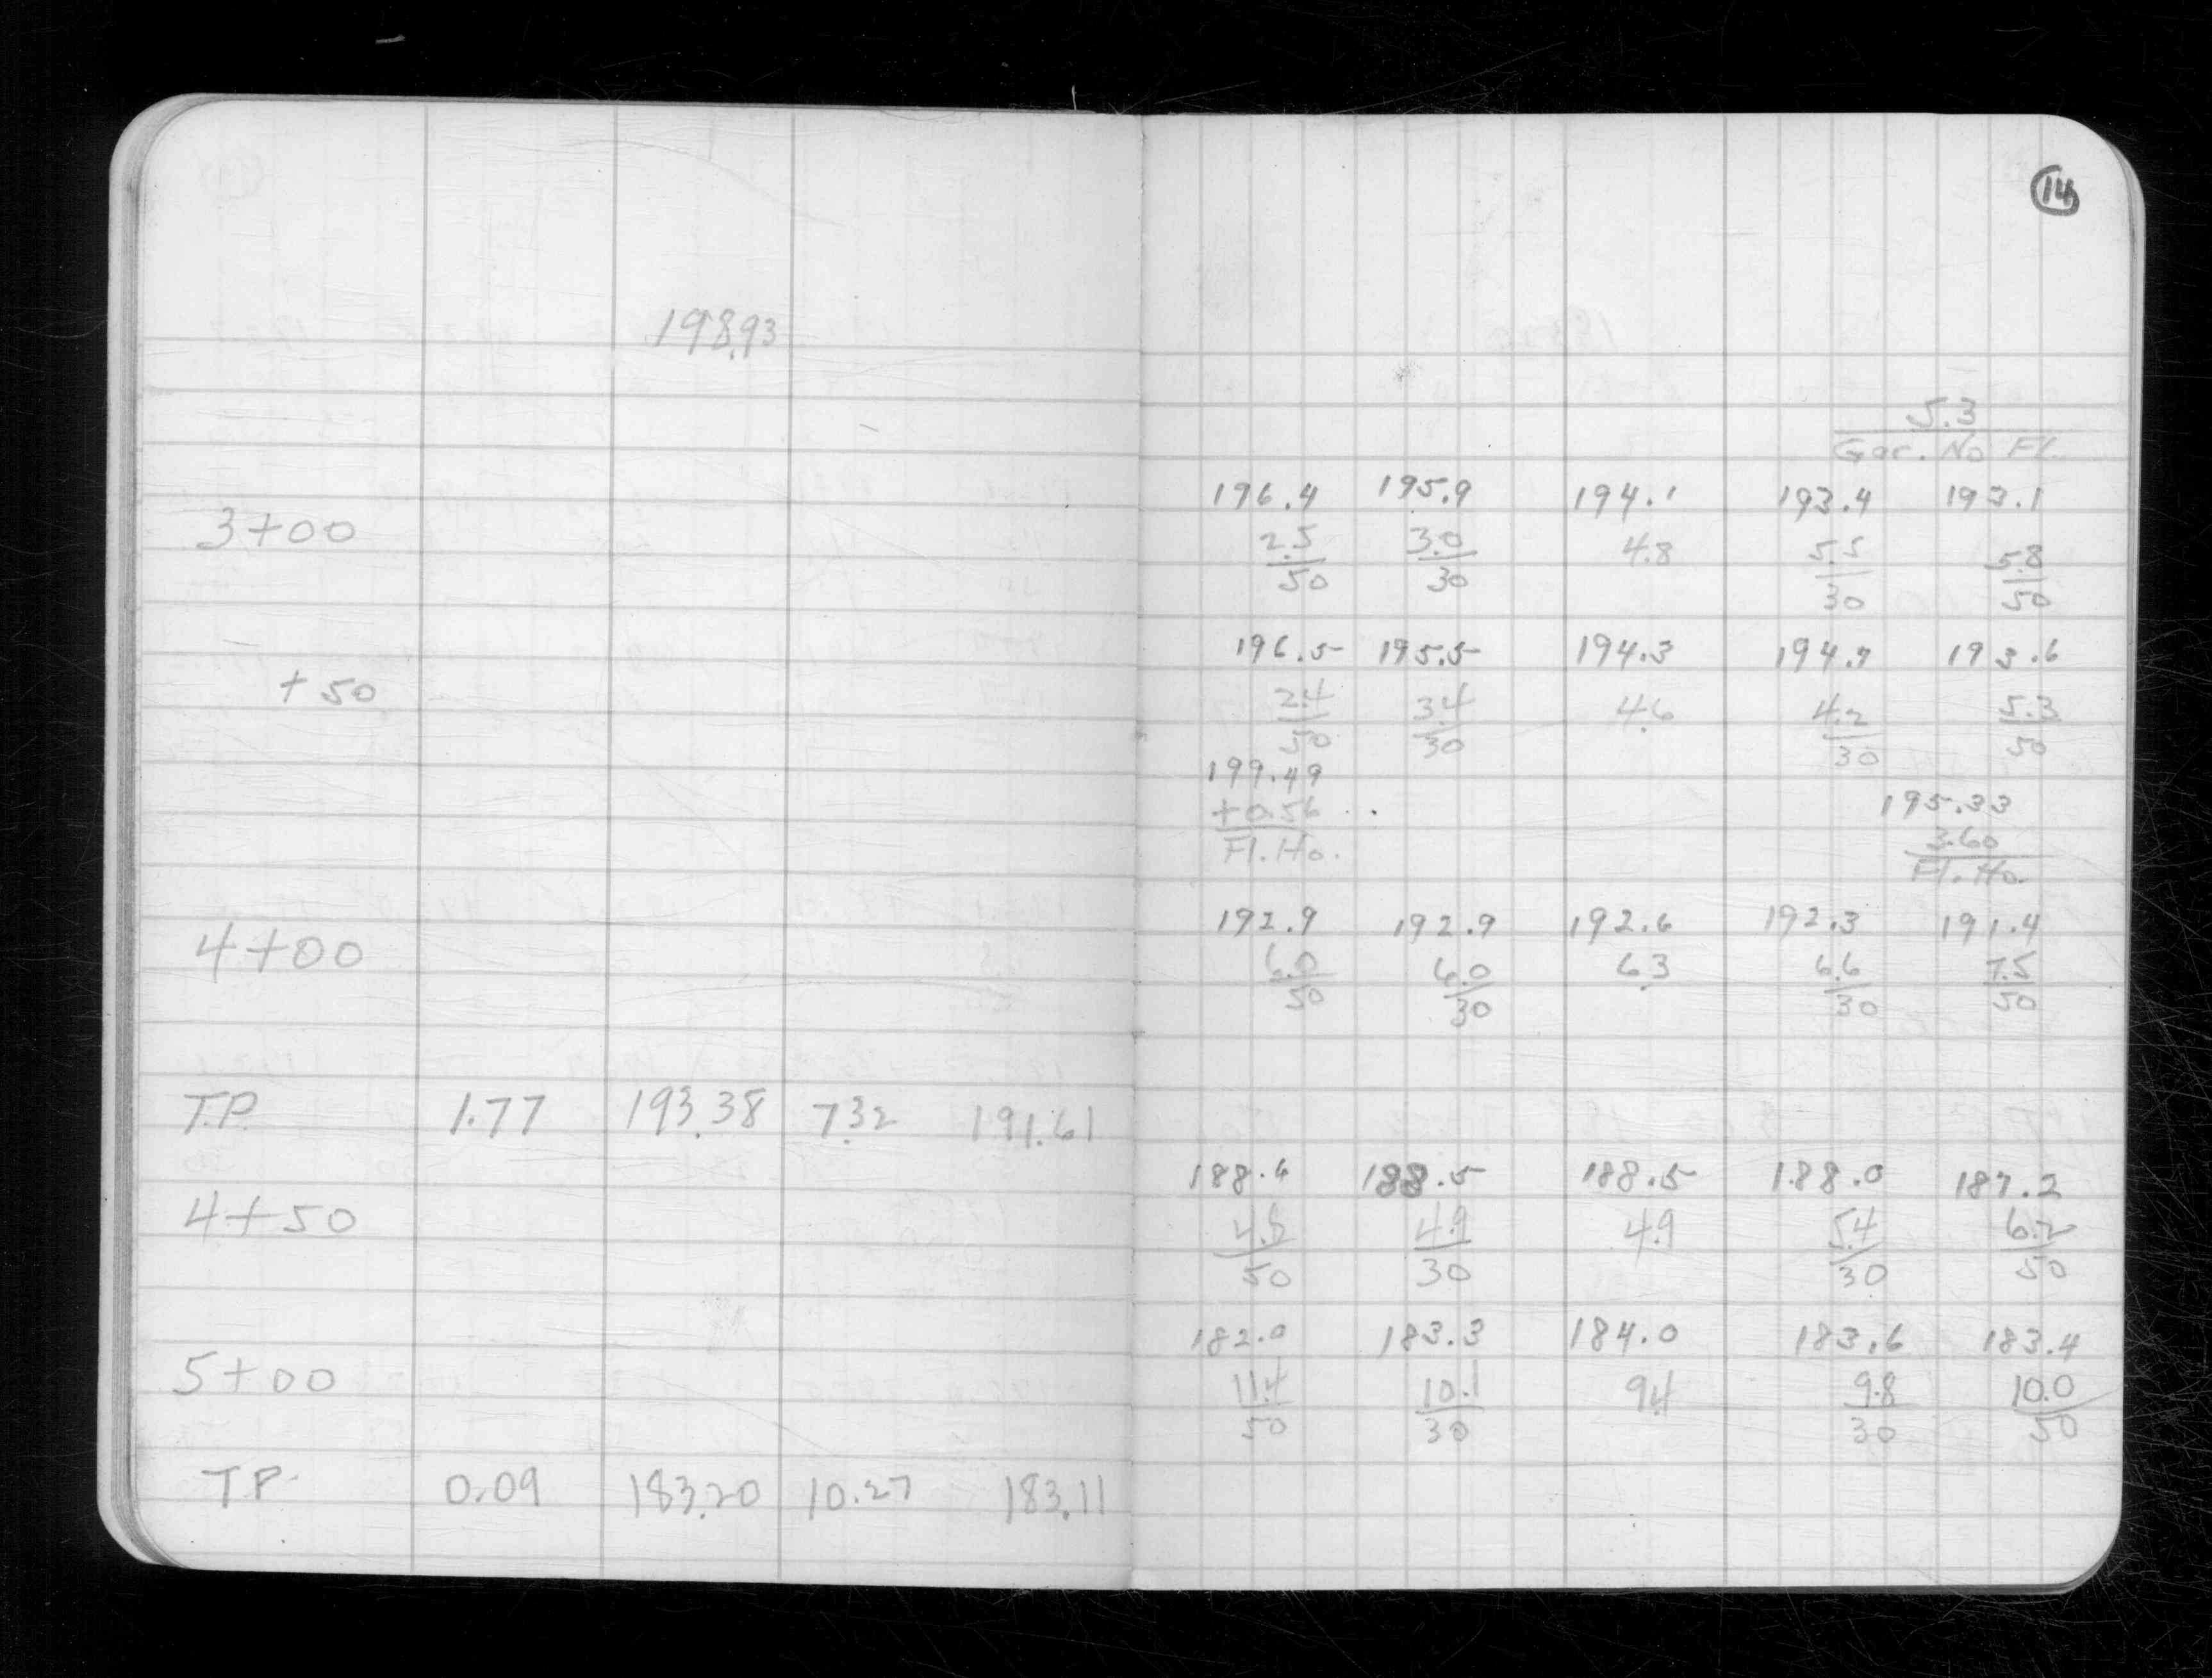 14
198.93
5.3
Gar. No Fl.
196.4 195.9 194.1 193.4 193.1
3+00 2.5 3.0 4.8 5.5 5.8
50 30 30 50
196.5 195.5 194.3 194.7 193.6
+50 2.4 3.4 4.6 4.2 5.3
50 30 30 50
199.49
+0.56
Fl. Ho.
195.33
3.60
Fl. Ho.
192.9 192.9 192.6 192.3 191.4
4+00 6.0 6.0 6.3 6.6 7.5
50 30 30 50
T.P. 1.77 193.38 7.32 191.61
188.6 188.5 188.5 188.0 187.2
4+50 4.8 4.9 4.9 5.4 6.2
50 30 30 50
182.0 183.3 184.0 183.6 183.4
5+00 11.4 10.1 9.4 9.8 10.0
50 30 30 50
T.P. 0.09 183.20 10.27 183.11